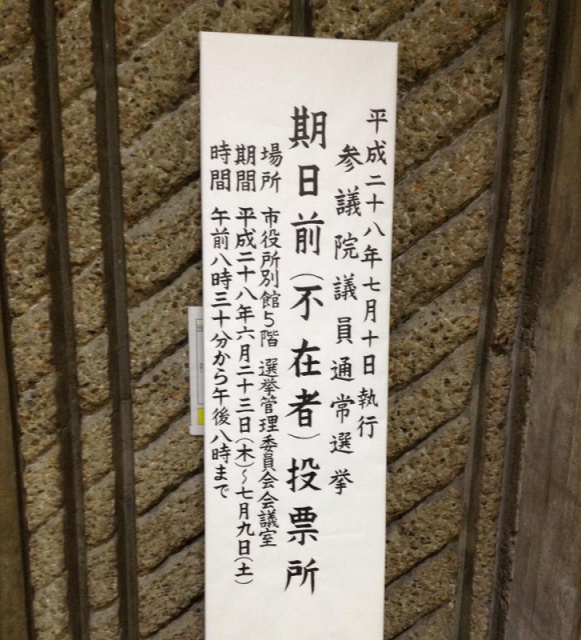 平成二十八年七月十日執行
参議院議員通常選挙
期日前（不在者）投票所
場所 市役所別館5階 選挙管理委員会会議室
期間 平成二十八年六月二十三日（木）～七月九日（土）
時間 午前八時三十分から午後八時まで